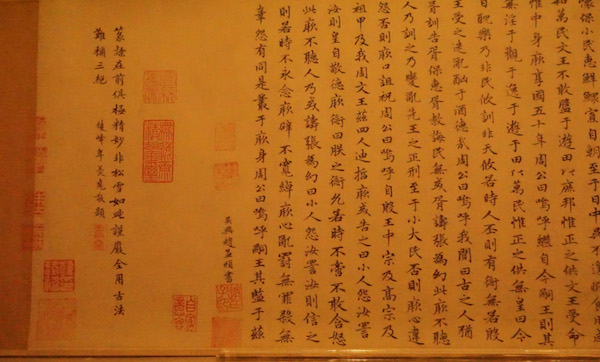 懷保小民惠鮮鰥寡自朝至于日中昃不遑暇食用
和萬民文王不敢盤于遊田以庶邦惟正之供文王受命
惟中身厥享國五十年周公曰嗚呼繼自今嗣王則其
無淫于觀于逸于遊于田以萬民惟正之供無皇曰今
日耽樂乃非民攸訓非天攸若時人丕則有愆無若殷
王受之迷亂酗于酒德哉周公曰嗚呼我聞曰古之人猶
胥訓告胥保惠胥教誨民無或胥譸張為幻此厥不聽
人乃訓之乃變亂先王之正刑至于小大民否則厥心違
怨否則厥口詛祝周公曰嗚呼自殷王中宗及高宗及
祖甲及我周文王茲四人迪哲厥或告之曰小人怨汝詈
汝則皇自敬德厥愆曰朕之愆允若時不啻不敢含怒
此厥不聽人乃或譸張為幻曰小人怨汝詈汝則信之
則若時不永念厥辟不寬綽厥心亂罰無罪殺無
辜怨有同是叢于厥身周公曰嗚呼嗣王其監于茲
吳興趙孟頫書
篆隸在前俱極精妙非松雪如此謹嚴全用古法
難稱三絕
雙峰年羹堯敬題